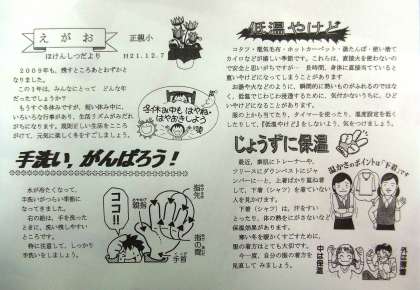 えがお
ほけんしつだより
正親小
H21.12.7
2009年も、残すところあとわずかと
なりました。
この1年は、みんなにとって どんな年
だったでしょうか?
もうすぐ冬休みですが、短い休み中に、
いろいろな行事があり、生活リズムがみだれ
がちになります。規則正しい生活をこころ
がけて、元気に楽しく冬をすごしましょう。
冬休み中も、はやね・
はやおきしよう
手洗い、がんばろう!
水が冷たくなって、
手洗いがつらい季節に
なってきました。
右の絵は、手を洗った
ときに、洗い残しやすい
ところです。
特に注意して、しっかり
手洗いをしましょう。
ココ!!
指先
指の間
手首
低温やけど
コタツ・電気毛布・ホットカーペット・湯たんぽ・使い捨て
カイロなどが嬉しい季節です。これらは、直接火を使わないの
で安全と思いがちですが… 長時間、身体に直接当てていると
重いやけどになってしまうことがあります
お湯や火などのように、瞬間的に熱いものがふれるのではな
く、低温でじわじわ浸透するために、気付かないうちに、ひど
いやけどになることがあります。
服の上から当てたり、タイマーを使ったり、温度設定を低く
したりして、『低温やけど』をしないよう、気をつけましょう。
じょうずに保温
最近、素肌にトレーナーや、
フリースにダウンベストにジャ
ンパーに…と、上着ばかり重ね着
して、下着(シャツ)を着ていない
人を見かけます。
下着(シャツ)は、汗をすい
とったり、体の熱をにがさないなど
保温効果があります。
寒い冬を暖かくすごすために、
服の着方はとても大切です。
今一度、自分の服の着方を
見直してみましょう。
温かさのポイントは「下着」